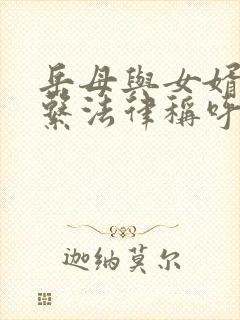 岳母與女婿
繫法律稱呼
迦纳莫尔